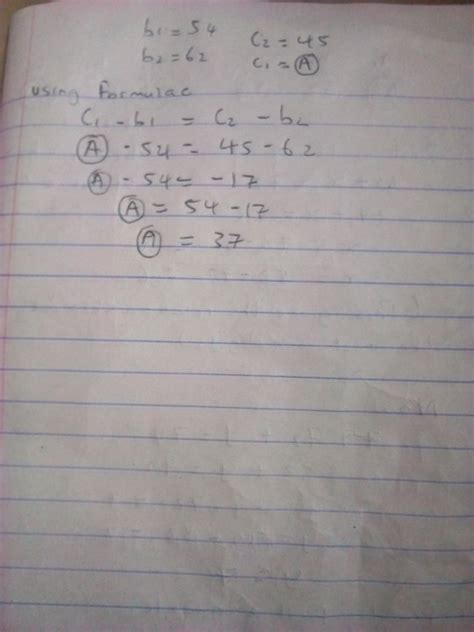 b1 = 54 C2 = 45
b2 = 62 C1 = A
Using Formulae
C1 - b1 = C2 - b2
A - 54 = 45 - 62
A - 54 = -17
A = 54 - 17
A = 37